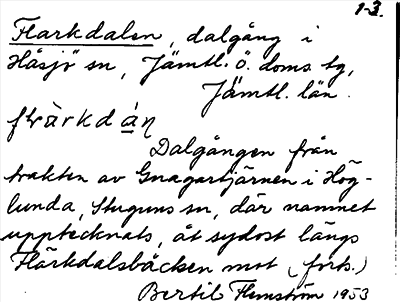 1-3.
Flarkdalen, dalgång i
Håsjö sn, Jämtl. ö. doms. tg,
Jämtl. län.
flàrkdán
Dalgången från
trakten av Gnagartjärnen i Hög-
lunda, Stuguns sn, där namnet
upptecknats, åt sydost längs
Flärkdalsbäcken mot (forts.)
Bertil Flemström 1953